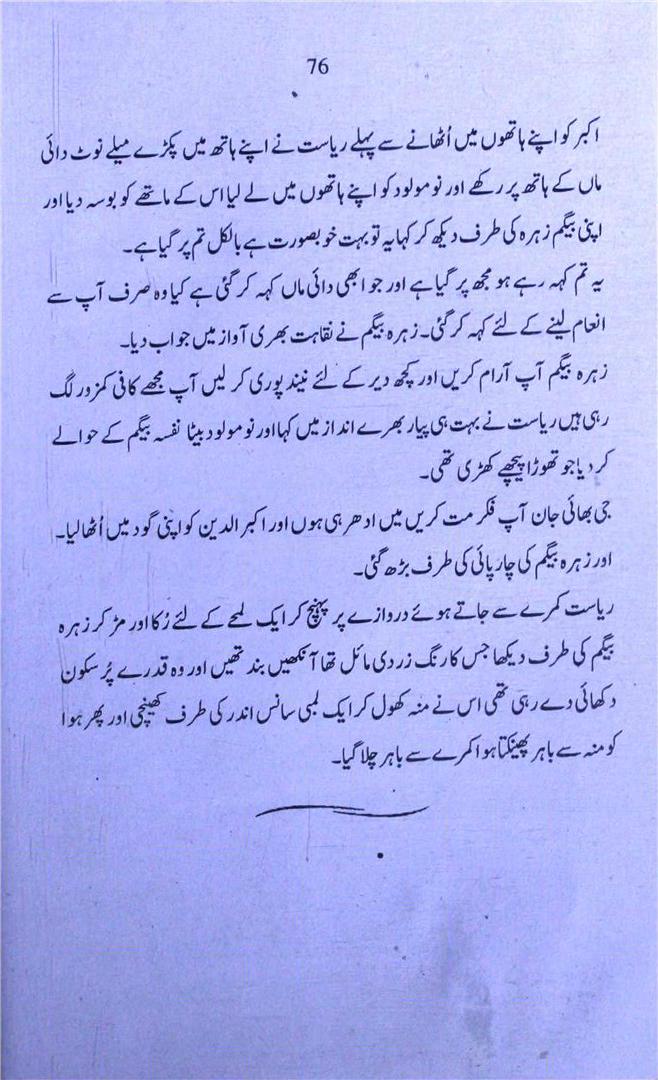 76
اکبر کو اپنے ہاتھوں میں اُٹھانے سے پہلے ریاست نے اپنے ہاتھ میں پکڑے میلے نوٹ دائی
ماں کے ہاتھ پر رکھے اور نومولود کو اپنے ہاتھوں میں لے لیا اس کے ماتھے کو بوسہ دیا اور
اپنی بیگم زہرہ کی طرف دیکھ کر کہا یہ تو بہت خوبصورت ہے بالکل تم پر گیا ہے۔
یہ تم کہہ رہے ہو مجھ پر گیا ہے اور جو ابھی دائی ماں کہہ کر گئی ہے کیا وہ صرف آپ سے
انعام لینے کے لئے کہہ کر گئی۔ زہرہ بیگم نے نقاہت بھری آواز میں جواب دیا۔
زہرہ بیگم آپ آرام کریں اور کچھ دیر کے لئے نیند پوری کر لیں آپ مجھے کافی کمزور لگ
رہی ہیں ریاست نے بہت ہی پیار بھرے انداز میں کہا اور نومولود بیٹا نفسہ بیگم کے حوالے
کر دیا جو تھوڑا پیچھے کھڑی تھی۔
جی بھائی جان آپ فکر مت کریں میں ادھر ہی ہوں اور اکبر الدین کو اپنی گود میں اُٹھا لیا۔
اور زہرہ بیگم کی چارپائی کی طرف بڑھ گئی۔
ریاست کمرے سے جاتے ہوئے دروازے پر پہنچ کر ایک لمحے کے لئے رُکا اور مڑ کر زہرہ
بیگم کی طرف دیکھا جس کا رنگ زردی مائل تھا آنکھیں بند تھیں اور وہ قدرے پُر سکون
دکھائی دے رہی تھی اس نے منہ کھول کر ایک لمبی سانس اندر کی طرف کھینچی اور پھر ہوا
کو منہ سے باہر پھینکتا ہوا کمرے سے باہر چلا گیا۔